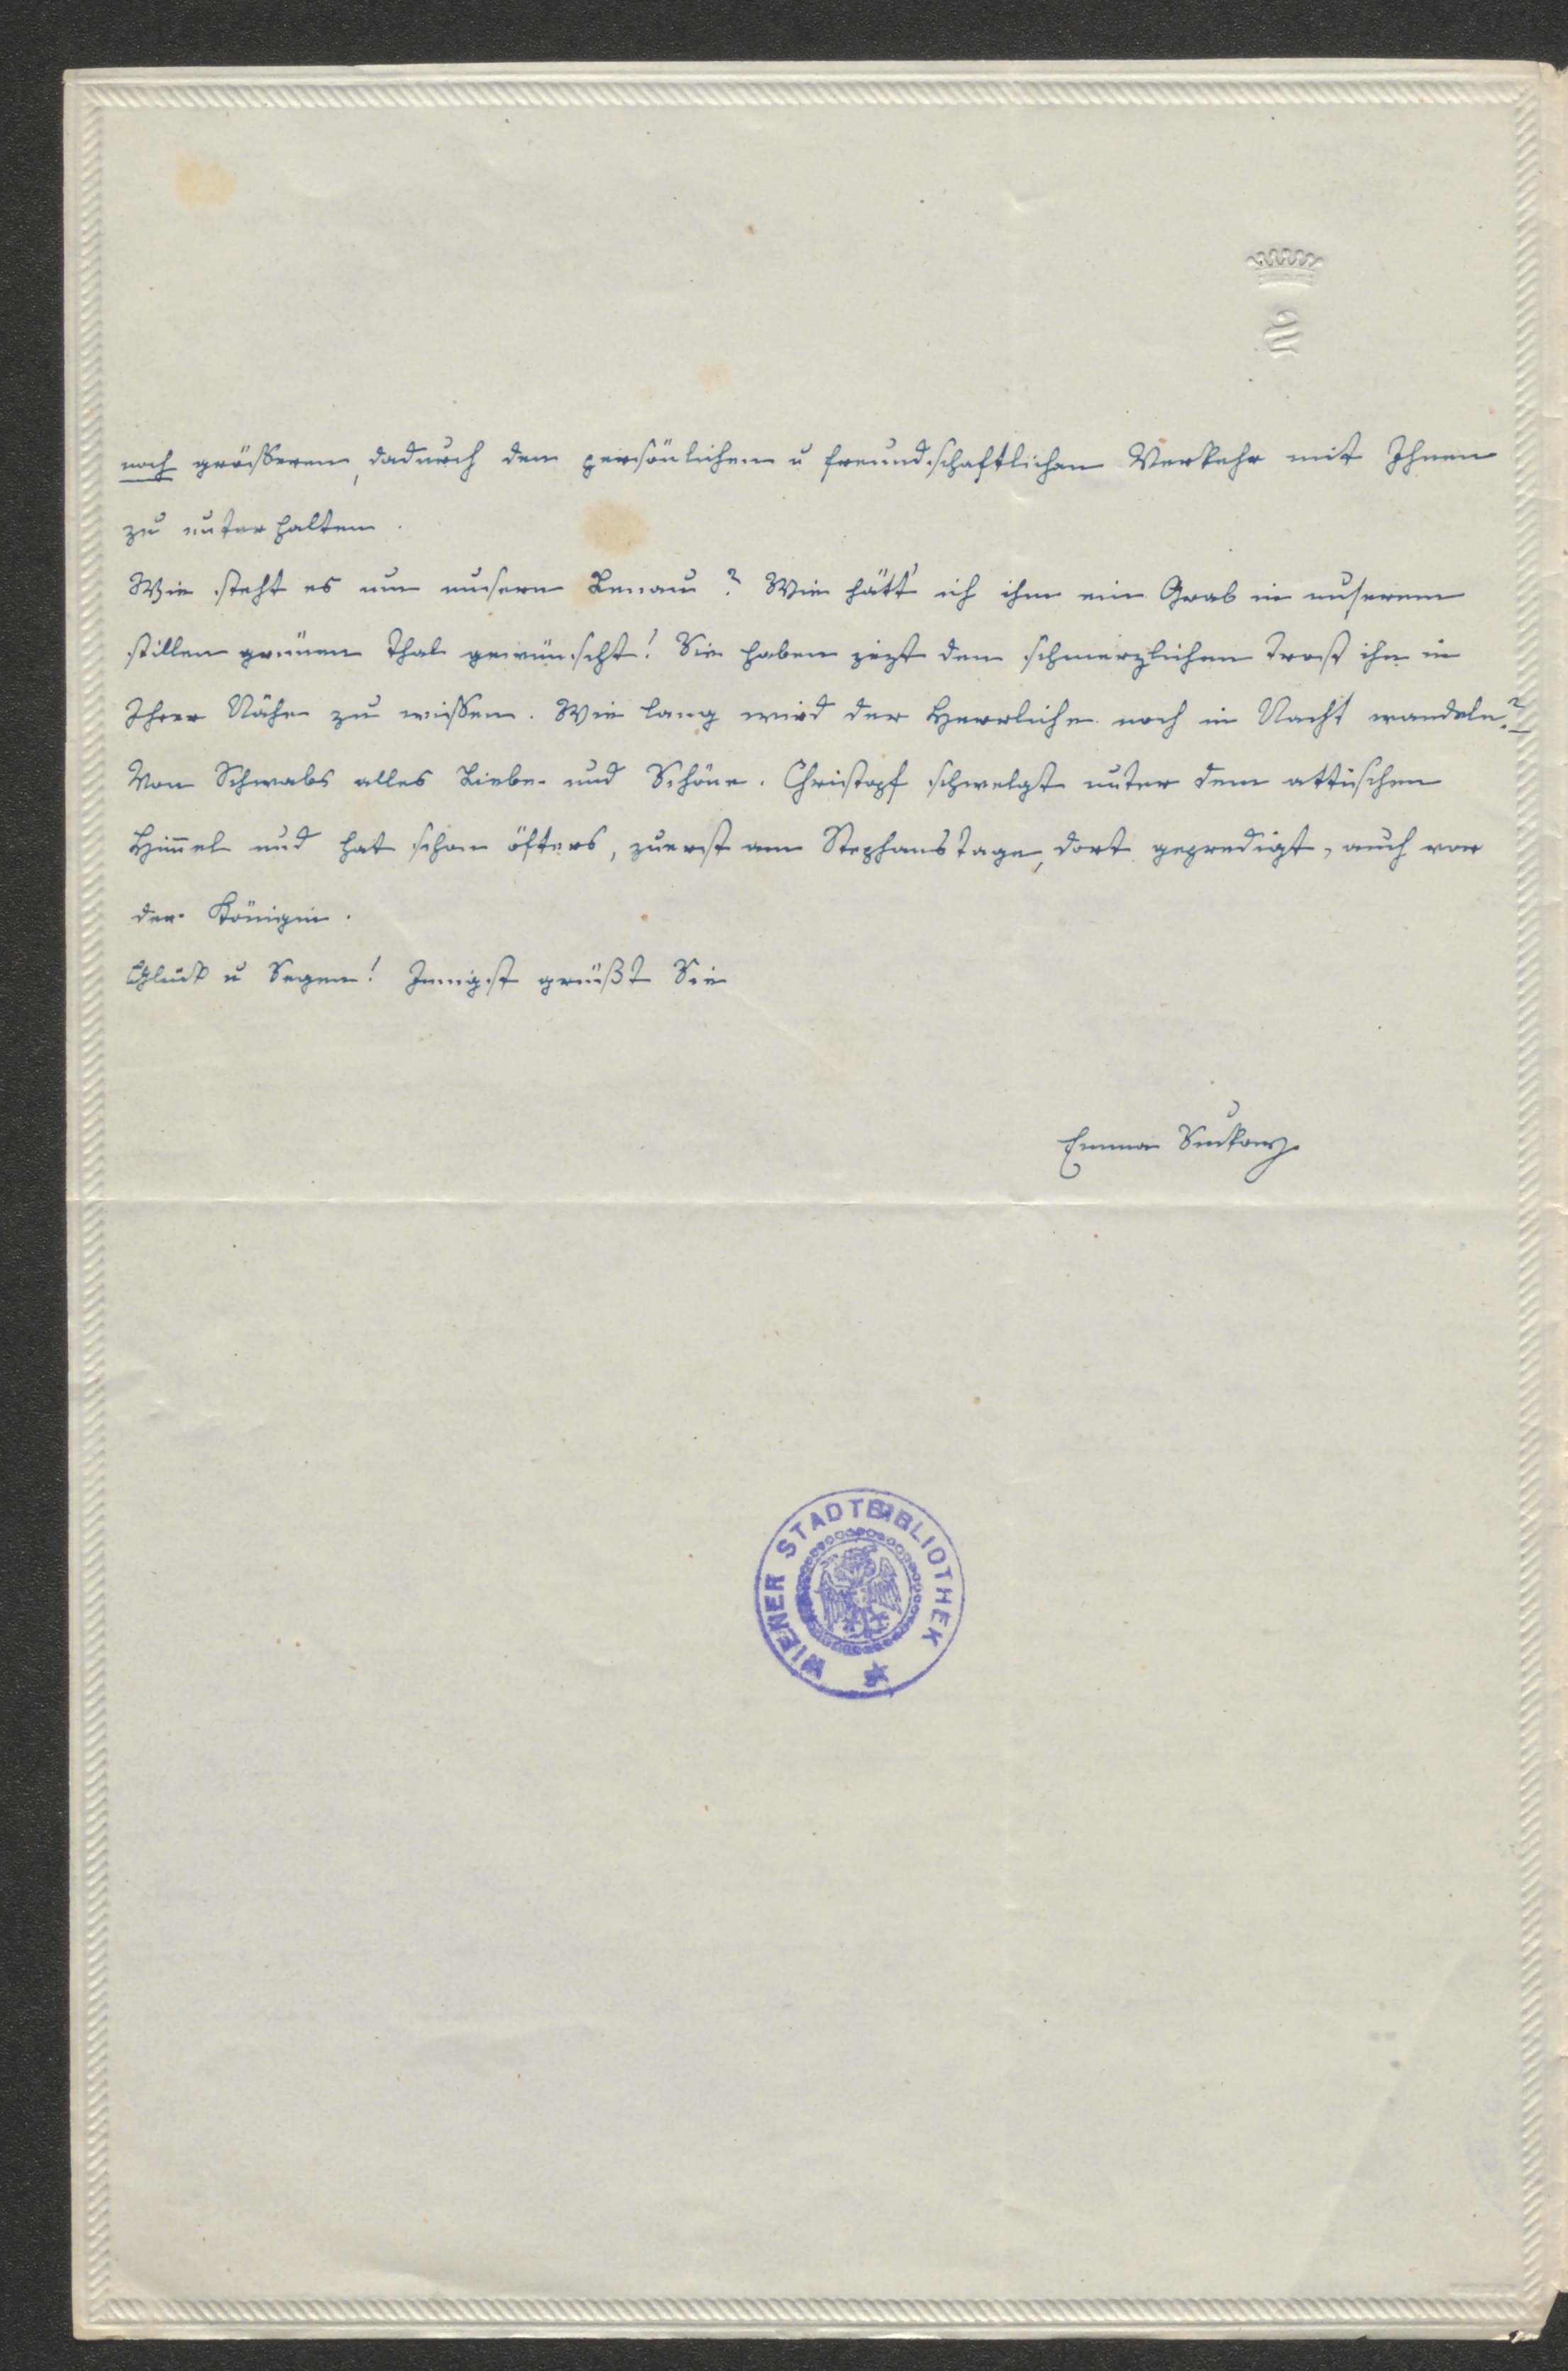 noch grösseren, dadurch den persönlichen u freundschaftlichen Verkehr mit Ihnen
zu unterhalten.
Wie steht es um unsern Lenau? Wie hätt' ich ihm ein Grab in unserem
stillen grünen Thal gewünscht! Sie haben jezt den schmerzlichen Trost ihn in
Ihrer Nähe zu wissen. Wie lang wird der Herrliche noch in Nacht wandeln?
Von Schwabs alles Liebe und Schöne. Christoph schwelgt unter dem attischen
Him̅el und hat schon öfters, zuerst am Stephanstage, dort gepredigt, auch vor
der Königin.
Glück u Segen! Innigst grüßt Sie
Emma Suckow
WIENER STADTBIBLIOTHEK